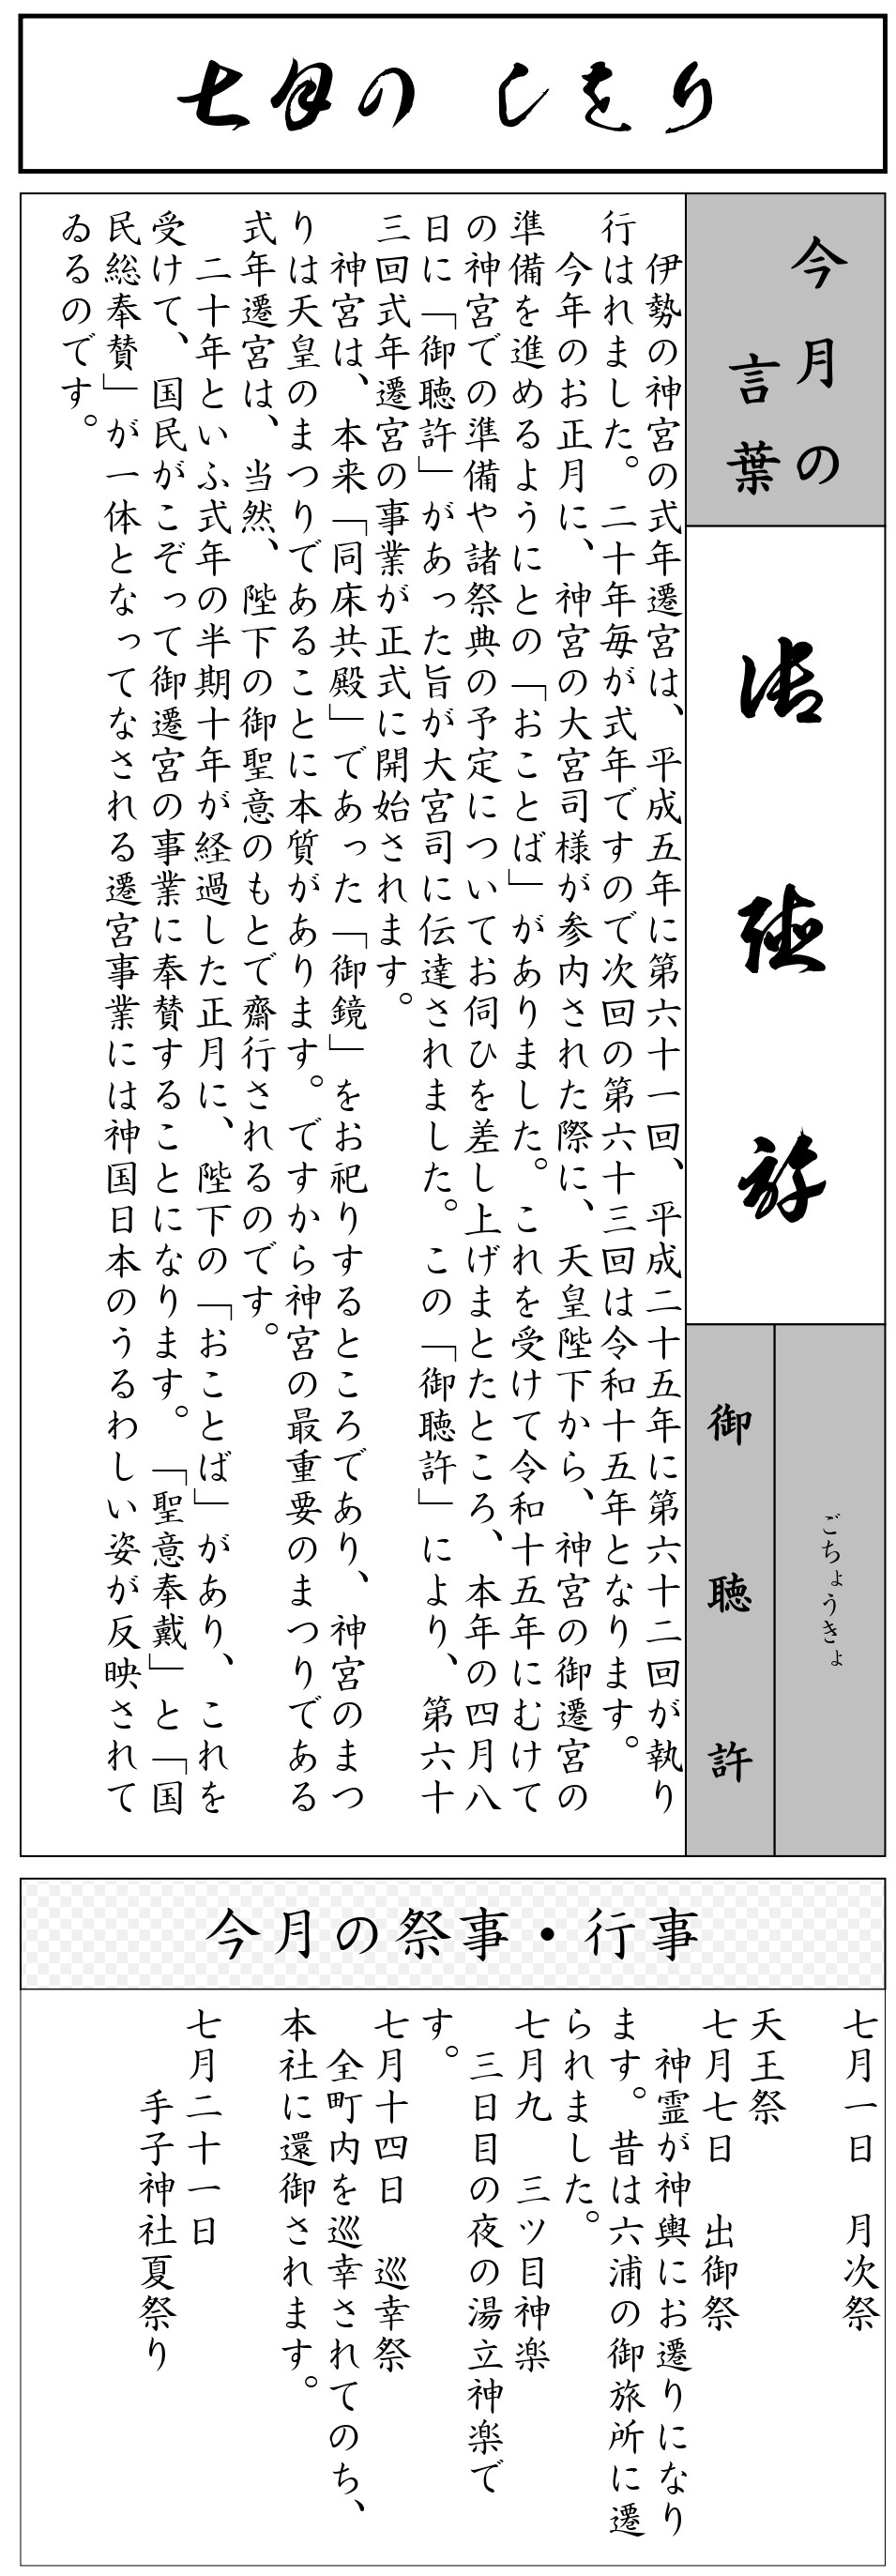 七月の しをり
今月の
言葉
御聴許
ごちょうきょ
御聴許
伊勢の神宮の式年遷宮は、平成五年に第六十一回、平成二十五年に第六十二回が執り
行はれました。二十年毎が式年ですので次回の第六十三回は令和十五年となります。
今年のお正月に、神宮の大宮司様が参内された際に、天皇陛下から、神宮の御遷宮の
準備を進めるようにとの「おことば」がありました。これを受けて令和十五年にむけて
の神宮での準備や諸祭典の予定についてお伺ひを差し上げまとたところ、本年の四月八
日に「御聴許」があった旨が大宮司に伝達されました。この「御聴許」により、第六十
三回式年遷宮の事業が正式に開始されます。
神宮は、本来「同床共殿」であった「御鏡」をお祀りするところであり、神宮のまつ
りは天皇のまつりであることに本質があります。ですから神宮の最重要のまつりである
式年遷宮は、当然、陛下の御聖意のもとで齋行されるのです。
二十年といふ式年の半期十年が経過した正月に、陛下の「おことば」があり、これを
受けて、国民がこぞって御遷宮の事業に奉賛することになります。「聖意奉戴」と「国
民総奉賛」が一体となってなされる遷宮事業には神国日本のうるわしい姿が反映されて
ゐるのです。
今月の祭事・行事
七月一日 月次祭
天王祭
七月七日 出御祭
神霊が神輿にお遷りになり
ます。昔は六浦の御旅所に遷
られました。
七月九 三ツ目神楽
三日目の夜の湯立神楽で
す。
七月十四日 巡幸祭
全町内を巡幸されてのち、
本社に還御されます。
七月二十一日
手子神社夏祭り